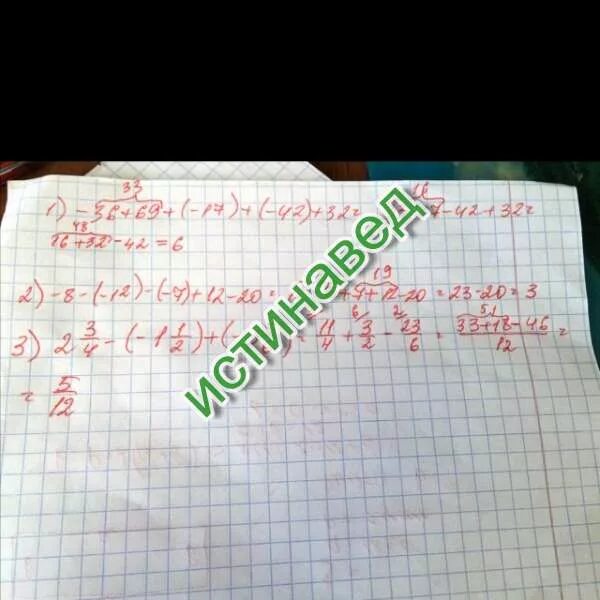 33 16
1) -36+69+(-17)+(-42)+32= 7-42+32=
48
16+32-42=6
19
2) -8-(-12)-(-7)+12-20= +7+12-20=23-20=3
6 2 51
3) 2 3/4 - (-1 1/2) + (- = 11/4 + 3/2 - 23/6 = 33+18-46/12 =
= 5/12
ИСТИНАВЕД